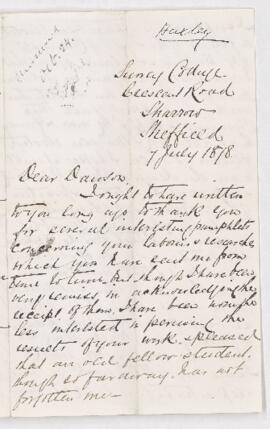 Huxley
Answered
Oct. 24.
Surrey Cottage
Crescent Road
Sharrow
Sheffield
7 July 1878.
Dear Dawson.
I ought to have written
to you long ago to thank you
for several interesting pamphlets
concerning your labours & researches
which you have sent me from
time to time. But though I have been
very remiss, in acknowledging the
receipt of them. I have been nought
less interested in perusing the
results of your work, & pleased
that an old fellow student,
though so far away, has not
forgotten me.